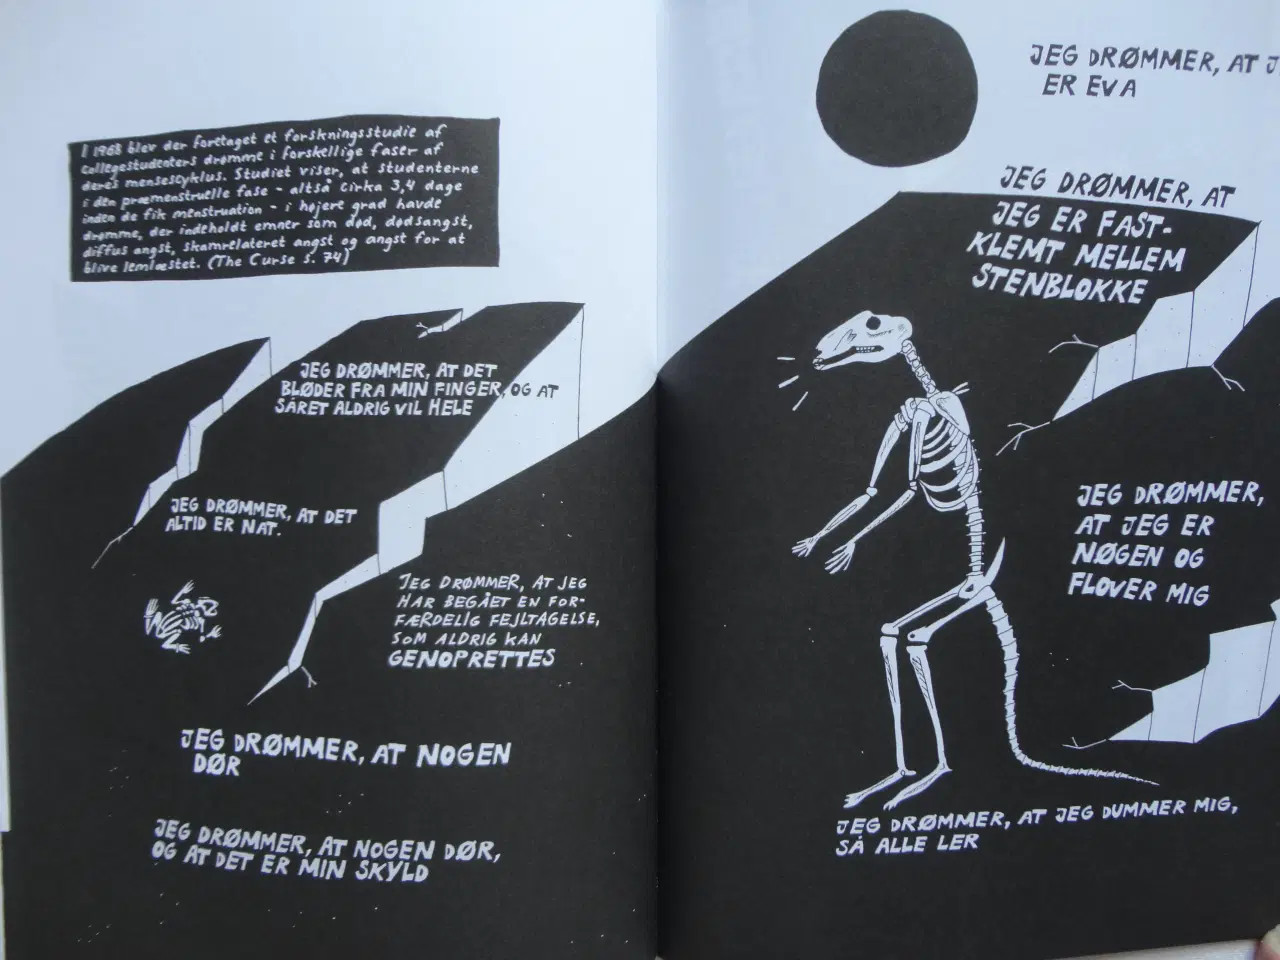 I 1968 blev der foretaget et forskningsstudie af
collegestudenters drømme i forskellige faser af
deres mensescyklus. Studiet viser, at studenterne
i den præmenstruelle fase - altså cirka 3,4 dage
inden de fik menstruation - i højere grad havde
drømme, der indeholdt emner som død, dødsangst,
diffus angst, skamrelateret angst og angst for at
blive lemlæstet. (The Curse s. 74)
JEG DRØMMER, AT DET
BLØDER FRA MIN FINGER, OG AT
SÅRET ALDRIG VIL HELE
JEG DRØMMER, AT DET
ALTID ER NAT.
JEG DRØMMER, AT JEG
HAR BEGÅET EN FOR-
FÆRDELIG FEJLTAGELSE,
SOM ALDRIG KAN
GENOPRETTES
JEG DRØMMER, AT NOGEN
DØR
JEG DRØMMER, AT NOGEN DØR,
OG AT DET ER MIN SKYLD
JEG DRØMMER, AT J
ER EVA
JEG DRØMMER, AT
JEG ER FAST-
KLEMT MELLEM
STENBLOKKE
JEG DRØMMER,
AT JEG ER
NØGEN OG
FLOVER MIG
JEG DRØMMER, AT JEG DUMMER MIG,
SÅ ALLE LER